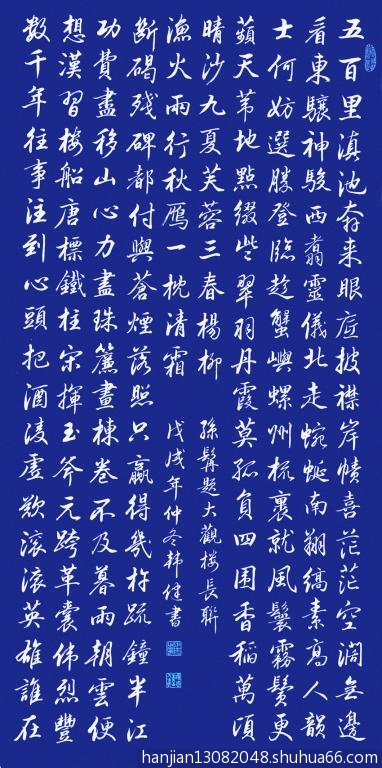 五百里滇池奔來眼底披襟岸幘喜茫茫空闊無邊
看東驤神駿西翥靈儀北走蜿蜒南翔縞素高人韻
士何妨選勝登臨趁蟹嶼螺州梳裹就風鬟霧鬢更
蘋天葦地點綴些翠羽丹霞莫孤負四圍香稻萬頃
晴沙九夏芙蓉三春楊柳
孫髯題大觀樓長聯
數千年往事注到心頭把酒淩虛歎滾滾英雄誰在
想漢習樓船唐標鐵柱宋揮玉斧元跨革囊偉烈豐
功費盡移山心力盡珠簾畫棟卷不及暮雨朝雲便
斷碣殘碑都付與蒼煙落照只贏得幾杵疏鐘半江
漁火兩行秋雁一枕清霜
戊戌年仲冬韩健書
hanjian13082048.shuhua66.com